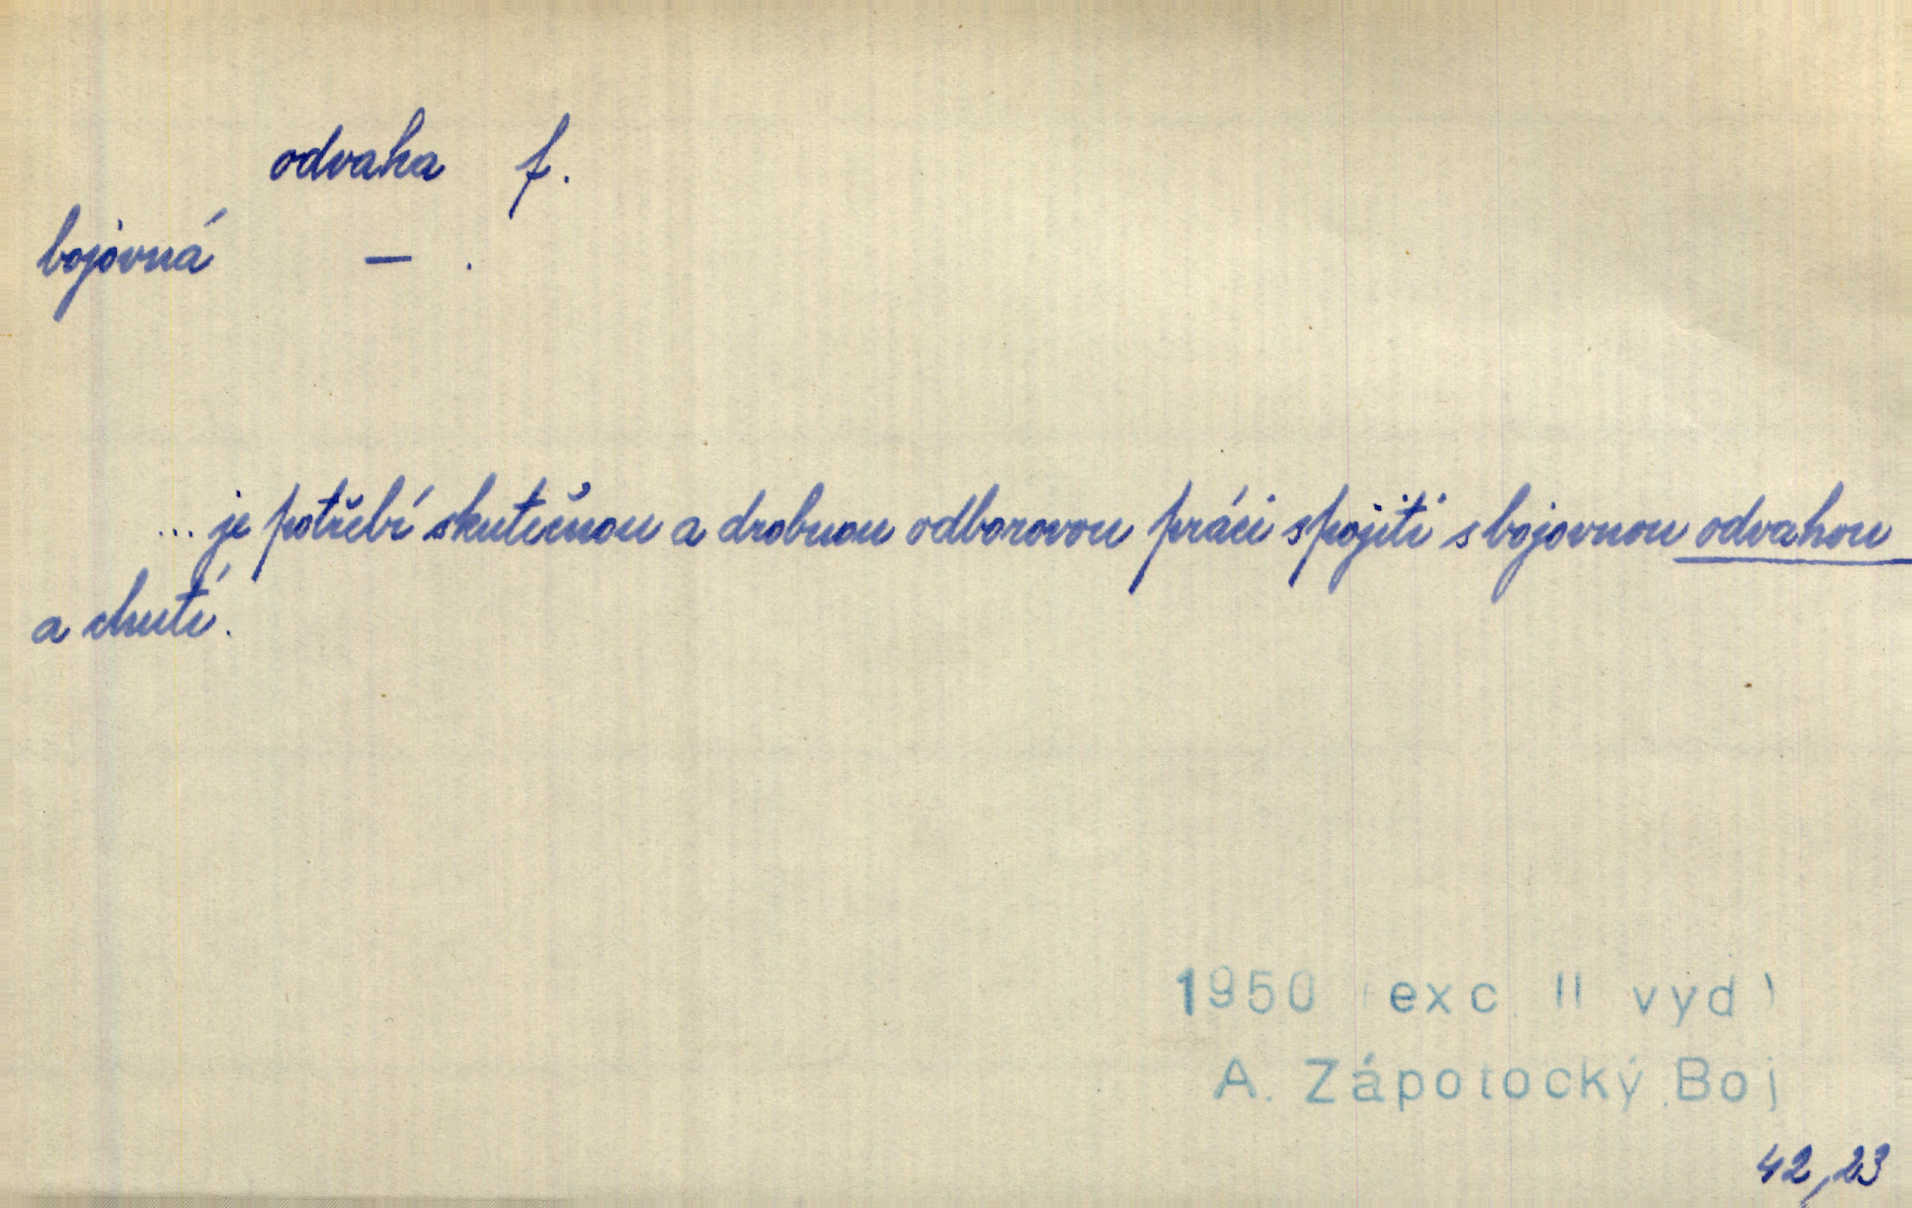 odvaha f.
bojovná – .
... je potřebí skutečnou a drobnou odborovou práci spojiti s bojovnou odvahou
a chutí.
1950 (exc II vyd)
A. Zápotocký, Boj
42,23